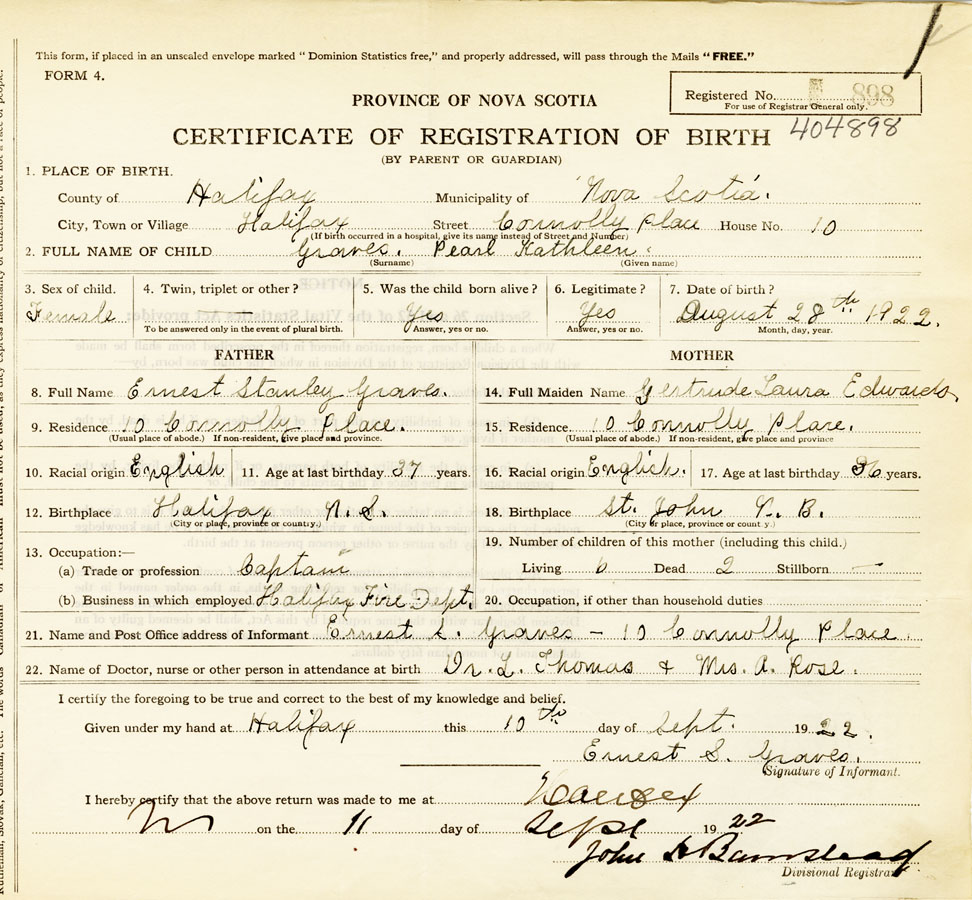 This form, if placed in an unsealed envelope marked "Dominion Statistics free," and properly addressed, will pass through the Mails "FREE."
FORM 4.
Registered No. 898
For use of Registrar General only.
PROVINCE OF NOVA SCOTIA
404898
CERTIFICATE OF REGISTRATION OF BIRTH
(BY PARENT OR GUARDIAN)
1. PLACE OF BIRTH.
County of Halifax Municipality of Nova Scotia.
City, Town or Village Halifax Street Connolly Place House No. 10
(If birth occurred in a hospital, give its name instead of Street and Number)
2. FULL NAME OF CHILD Graves. Pearl Kathleen.
(Surname) (Given name)
3. Sex of child. 4. Twin, triplet or other? 5. Was the child born alive? 6. Legitimate? 7. Date of birth?
Female — Yes Yes August 28th 1922.
To be answered only in the event of plural birth. Answer, yes or no. Answer, yes or no. Month, day, year.
FATHER MOTHER
8. Full Name Ernest Stanley Graves. 14. Full Maiden Name Gertrude Laura Edwards,
9. Residence 10 Connolly Place. 15. Residence. 10 Connolly Place.
(Usual place of abode.) If non-resident, give place and province. (Usual place of abode.) If non-resident, give place and province
10. Racial origin English 11. Age at last birthday 37 years. 16. Racial origin English. 17. Age at last birthday 36 years.
12. Birthplace Halifax N. S. 18. Birthplace St. John N. B.
(City or place, province or country.) (City or place, province or country.)
19. Number of children of this mother (including this child.)
13. Occupation:—
(a) Trade or profession Captain Living 6 Dead 2 Stillborn —
(b) Business in which employed Halifax Fire Dept. 20. Occupation, if other than household duties
21. Name and Post Office address of Informant Ernest S. Graves – 10 Connolly Place.
22. Name of Doctor, nurse or other person in attendance at birth Dr. L. Thomas & Mrs. A. Rose.
I certify the foregoing to be true and correct to the best of my knowledge and belief.
Given under my hand at Halifax this 10th day of Sept. 1922.
Ernest S. Graves.
Signature of Informant.
I hereby certify that the above return was made to me at Halifax
on the 11 day of Sept 1922
John Barnstead
Divisional Registrar